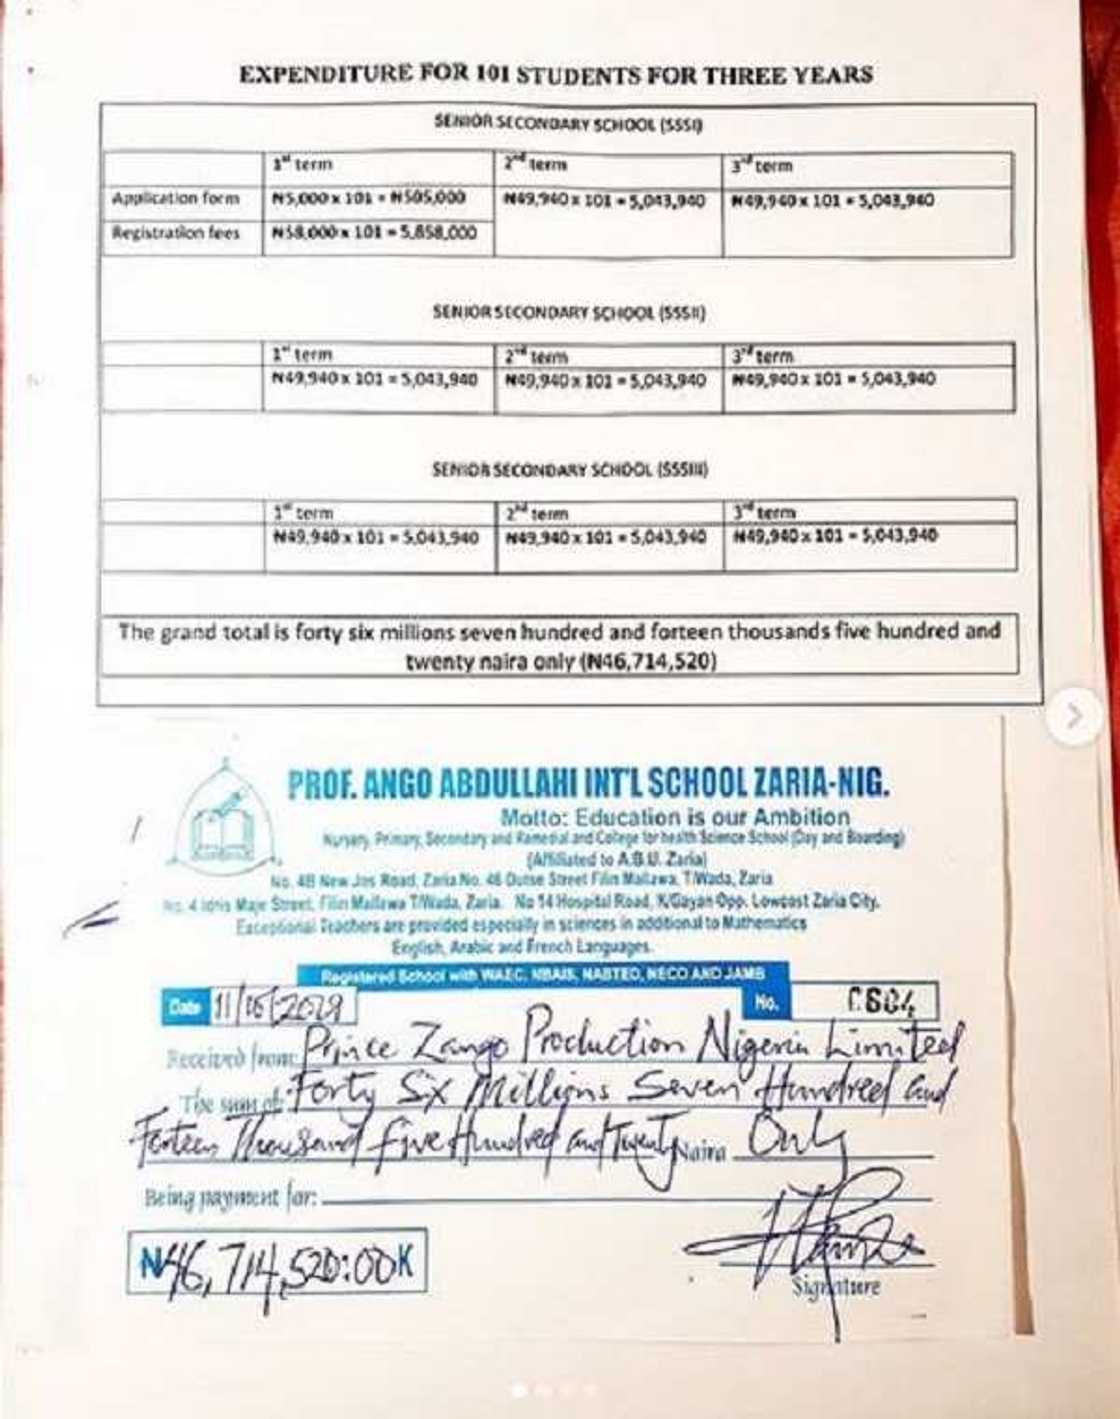 EXPENDITURE FOR 101 STUDENTS FOR THREE YEARS
SENIOR SECONDARY SCHOOL (SSSI)
1st term 2nd term 3rd term
Application form ₦5,000 x 101 = ₦505,000 ₦49,940 x 101 = 5,043,940 ₦49,940 x 101 = 5,043,940
Registration fees ₦58,000 x 101 = 5,858,000
SENIOR SECONDARY SCHOOL (SSSII)
1st term 2nd term 3rd term
₦49,940 x 101 = 5,043,940 ₦49,940 x 101 = 5,043,940 ₦49,940 x 101 = 5,043,940
SENIOR SECONDARY SCHOOL (SSSIII)
1st term 2nd term 3rd term
₦49,940 x 101 = 5,043,940 ₦49,940 x 101 = 5,043,940 ₦49,940 x 101 = 5,043,940
The grand total is forty six millions seven hundred and forteen thousands five hundred and
twenty naira only (N46,714,520)
PROF. ANGO ABDULLAHI INT'L SCHOOL ZARIA-NIG.
Motto: Education is our Ambition
Nursery, Primary, Secondary and Remedial and College for health Science School (Day and Boarding)
(Affiliated to A.B.U. Zaria)
No. 4B New Jos Road, Zaria No. 46 Dutse Street Filin Mallawa, T/Wada, Zaria
No. 4 Maje Street, Filin Mallawa T/Wada, Zaria. No 14 Hospital Road, K/Gayan Opp. Lowcost Zaria City.
Exceptional Teachers are provided especially in sciences in additional to Mathematics
English, Arabic and French Languages.
Registered School with WAEC, NBAIS, NABTEB, NECO AND JAMB
Date 11/05/2019 No.
Received from: Prince Zango Production Nigeria Limited
The sum of: Forty Six Millions Seven Hundred and
Forteen Thousand five Hundred and Twenty Naira Only
Being payment for:
₦46,714,520:00K
Signature